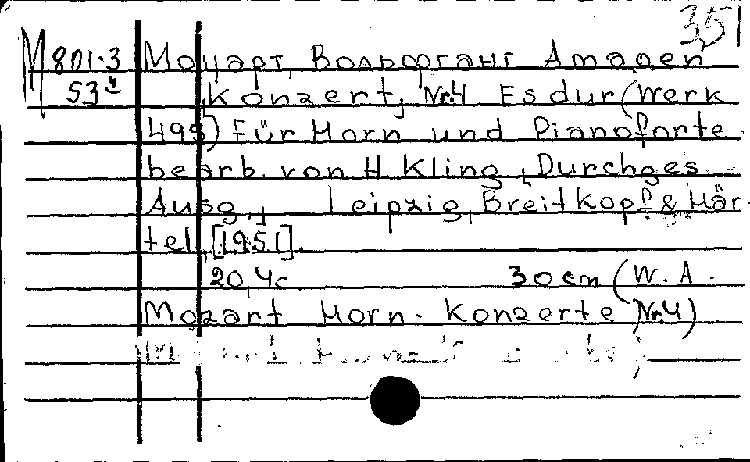 351
М 801-3 Моцарт, Вольфганг Амадей
53 Konzert, Nr.4 Es dur (Werk
495) Für Horn und Pianoforte
bearb. von H Kling, Durchges
Ausg., Leipzig, Breitkopf & Här-
tel, [1951].
20, 4с 30 cm (W. A.
Mozart Horn-Konzerte Nr.4)